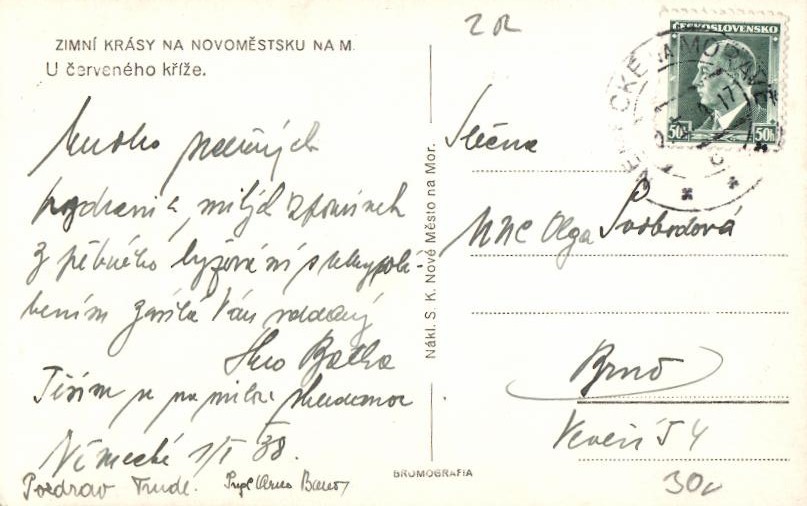 ZIMNÍ KRÁSY NA NOVOMĚSTSKU NA M.
U červeného kříže.
Mnoho srdečných
pozdravů a milých vzpomínek
z pěkného lyžování s rukypolí-
bením zasílá Vám oddaný
Těším se na milé shledanou
Německé 1/I 38.
Pozdrav Trude.
Nákl. S. K. Nové Město na Mor.
BROMOGRAFIA
20
ČESKOSLOVENSKO
50h 50h
NĚMECKÉ NA MORAVĚ
Slečna
MNC Olga Svobodová
Brno
Veveří 54
30